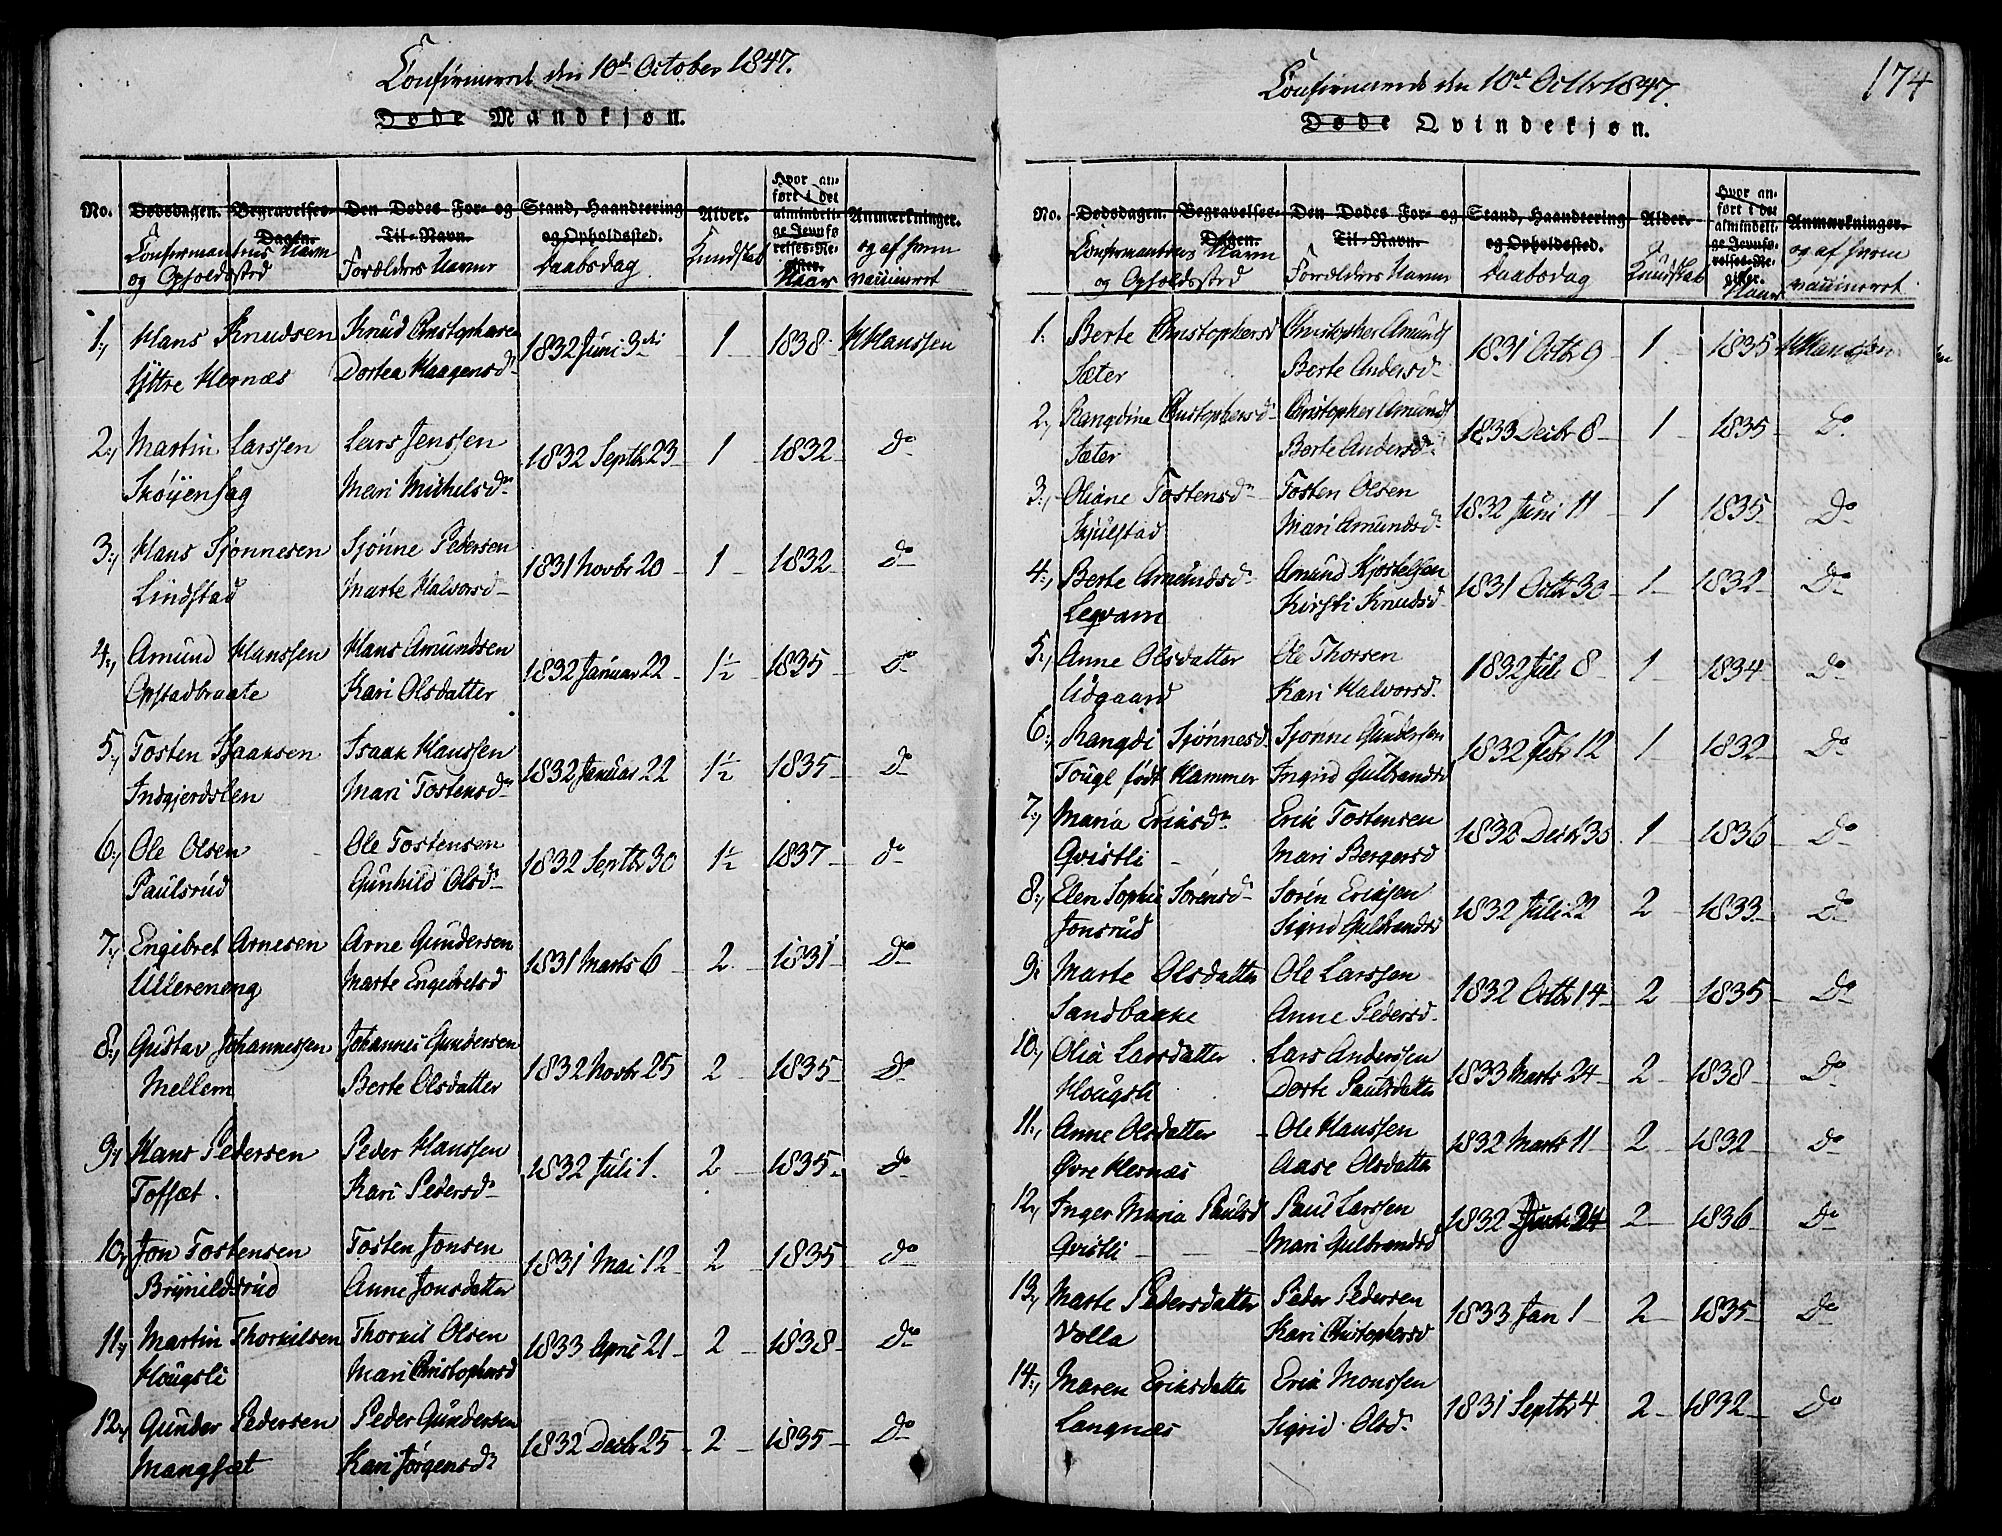 Confirmerede den 10de October 1847.
Døde Mandkjøn.
No. Dødsdagen. Begravelses-Dagen. Den Dødes For- og Til-Navn. Stand, Haandtering og Opholdssted. Alder. Hvor anført i det almindelige Jevnførelses-Register. Anmærkninger.
Confirmantens Navn og Opholdssted Forældres Navne Daabsdag Kundskab Naar og af hvem vaccineret
1, Hans Knudsen Knud Christophersen 1832 Juni 3die 1 1838 H Hanssen
Yttre Hernæs Dortea Haagensdr
2, Martin Larssen Lars Jenssen 1832 Septbr 23 1 1832 do
Skøyenhag Mari Michelsdr
3, Hans Sjønnesen Sjønne Pedersen 1831 Novbr 20 1 1832 do
Lindstad Marte Halvorsd
4, Amund Hanssen Hans Amundsen 1832 Januar 22 1½ 1835 do
Opstadbraate Kari Olsdatter
5, Tosten Isaaksen Isaak Hanssen 1832 Januar 22 1½ 1835 do
Indgjerdslen Mari Tostensdr
6, Ole Olsen Ole Tostensen 1832 Septbr 30 1½ 1837 do
Paulsrud Gunhild Olsdr
7, Engebret Arnesen Arne Gundersen 1831 Marts 6 2 1831 Do
Ullereneng Marte Engebretsd
8, Gustav Johannessen Johannes Gundersen 1832 Novbr 25 2 1835 Do
Mellem Berte Olsdatter
9, Hans Pedersen Peder Hanssen 1832 Juli 1. 2 1835 do
Toffsæt. Kari Pedersdr
10, Jon Tostensen Tosten Jonsen 1831 Mai 12 2 1835 do
Brynildsrud Anne Jonsdatter
11, Martin Thorkilsen Thorkil Olsen 1833 April 21 2 1838 Do
Hougsli Mari Christophersd
12, Gunder Pedersen Peder Gundersen 1832 Decbr 25 2 1835 Do
Mangsæt Kari Jørgensdr
174
Confirmerede den 10de Octbr 1847.
Døde Qvindekjøn.
No. Dødsdagen. Begravelses-Dagen. Den Dødes For- og Til-Navn. Stand, Haandtering og Opholdssted. Alder. Hvor anført i det almindelige Jevnførelses-Register. Anmærkninger.
Confirmantens Navn og Opholdssted Forældres Navne Daabsdag Kundskab Naar og af hvem vaccineret
1. Berte Christophersd Christopher Amunds 1831 Octbr 9 1 1835 H Hanssen
Sæter Berte Andersd
2, Rangdina Christophersd Christopher Amunds 1833 Decbr 8 1 1835 Do
Sæter Berte Andersdr
3, Oliane Tostensdr Tosten Olsen 1832 Juni 11 1 1835 Do
Skjulstad Mari Amundsdr
4, Berte Amundsdr Amund Kjostelsen 1831 Octbr 30 1 1832 Do
Leqvam Kirsti Knudsd
5, Anne Olsdatter Ole Thorsen 1832 Juli 8 1 1834 Do
Udgaard Kari Halvorsd
6, Rangdi Sjønnesd. Sjønne Gundersen 1832 Febr 12 1 1832 Do
født Hammer Ingrid Gulbrandsd
7, Maria Eriksdr Erik Tostensen 1832 Decbr 30 1 1836 Do
Qvistli Mari Bergersd
8, Elen Sophie Sørensdr Søren Eriksen 1832 Juli 22 2 1833 Do
Jonsrud Sigrid Gulbrandsd
9, Marte Olsdatter Ole Larssen 1832 Octbr 14 2 1835 Do
Sandbakke Anne Pedersd
10, Olia Larsdatter Lars Anderssen 1833 Marts 24 2 1838 Do
Hougsli Dorte Paulsdatter
11, Anne Olsdatter Ole Hanssen 1832 Marts 11 2 1832 Do
Øvre Hernæs Aase Olsdatter
12, Inger Maria Paulsd Paul Larssen 1832 Juni 24 2 1836 Do
Qvistli Mari Gulbrandsd
13, Marte Pedersdatter Peder Pedersen 1833 Jan 1 2 1835 Do
Volla Kari Christophersd
14, Maren Eriksdatter Erik Monssen 1831 Septbr 4 2 1832 Do
Langnæs Sigrid Olsdr